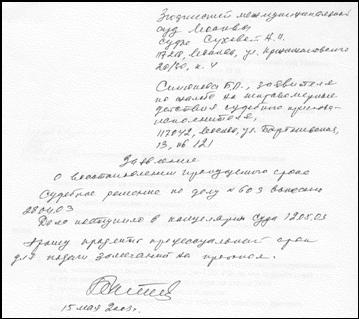 межмуниципальный
суд Москвы
судье Суховой А.И.
117218, Москва, ул. Кржижановского
20/30, к. 4
Симонова Б.П., заявителя
по жалобе на неправомерные
действия судебного пристава-
исполнителя,
117042, Москва, ул. 
13, кв 121
Заявление
О восстановлении пропущенного срока
Судебное решение по делу № 603 вынесено
28.04.03
Дело поступило в канцелярию суда 12.05.03
Прошу продлить процессуальный срок
для подачи замечаний на протокол.
15 мая 2003г.